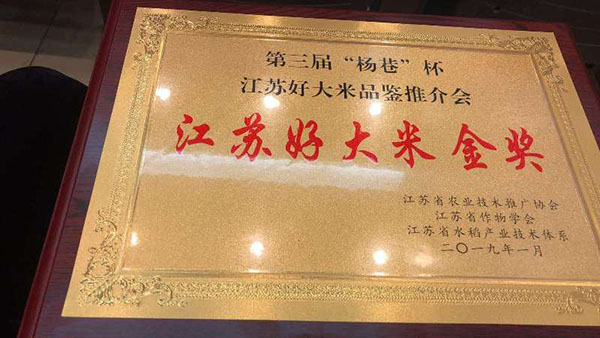 第三届“杨巷”杯
江苏好大米品鉴推介会
江苏好大米金奖
江苏省农业技术推广协会
江苏省作物学会
江苏省水稻产业技术体系
二〇一九年一月